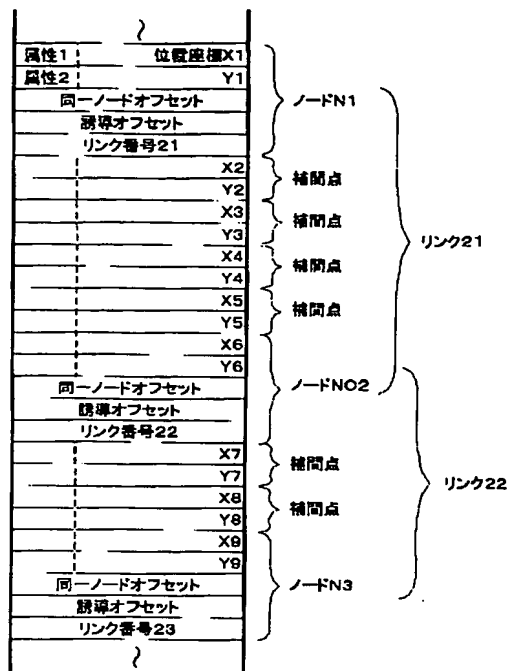 属性1 位置座標X1
属性2 Y1
同一ノードオフセット
誘導オフセット
リンク番号21
X2
Y2
X3
Y3
X4
Y4
X5
Y5
X6
Y6
同一ノードオフセット
誘導オフセット
リンク番号22
X7
Y7
X8
Y8
X9
Y9
同一ノードオフセット
誘導オフセット
リンク番号23
ノードN1
補間点
補間点
補間点
補間点
ノードNO2
補間点
補間点
ノードN3
リンク21
リンク22